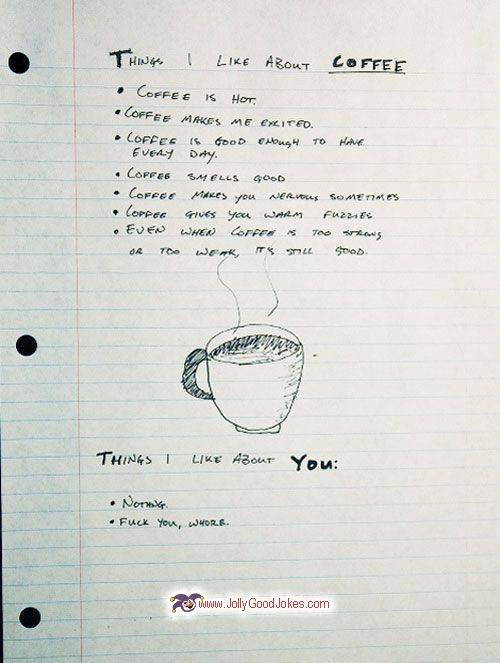 THINGS I LIKE ABOUT COFFEE
• COFFEE IS HOT.
• COFFEE MAKES ME EXCITED.
• COFFEE IS GOOD ENOUGH TO HAVE
EVERY DAY.
• COFFEE SMELLS GOOD
• COFFEE MAKES YOU NERVOUS SOMETIMES
• COFFEE GIVES YOU WARM FUZZIES
• EVEN WHEN COFFEE IS TOO STRONG
OR TOO WEAK, IT'S STILL GOOD.
THINGS I LIKE ABOUT YOU:
• NOTHNG.
• FUCK YOU, WHORE.
www.JollyGoodJokes.com